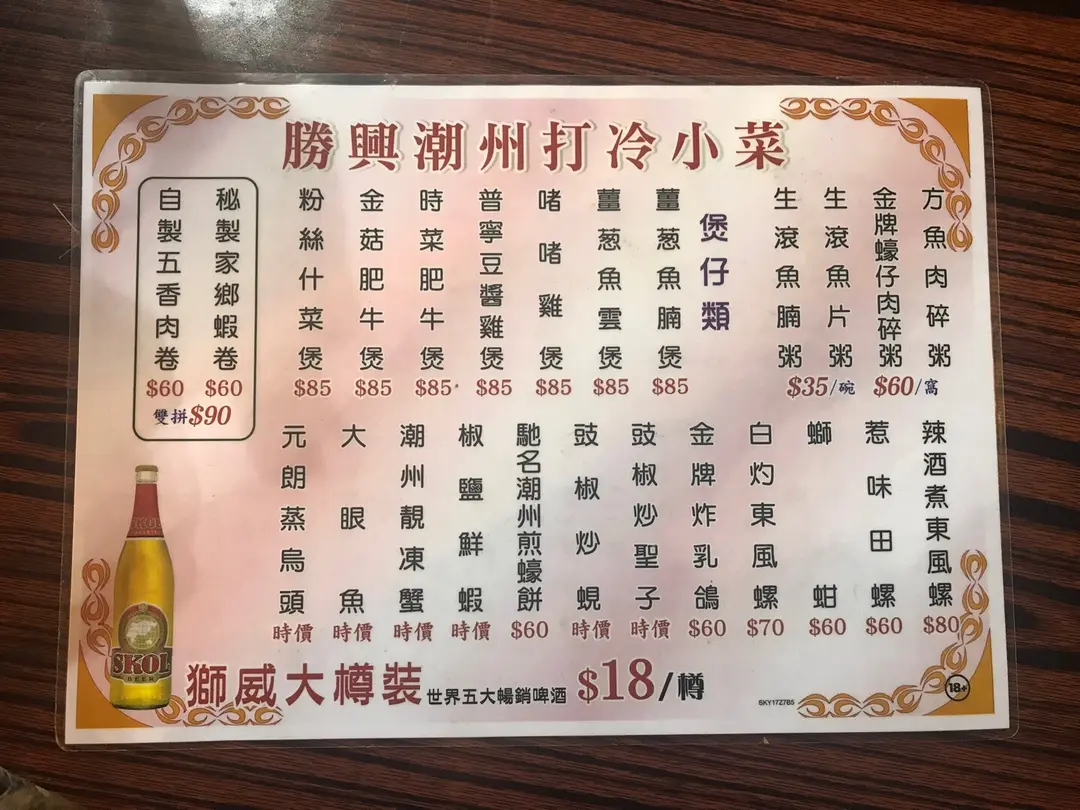 勝興潮州打冷小菜
方魚肉碎粥
金牌蠔仔肉碎粥
$60/窩
生滾魚片粥
生滾魚腩粥
$35/碗
煲仔類
薑葱魚腩煲
$85
薑葱魚雲煲
$85
啫啫雞煲
$85
普寧豆醬雞煲
$85
時菜肥牛煲
$85
金菇肥牛煲
$85
粉絲什菜煲
$85
秘製家鄉蝦卷
$60
自製五香肉卷
$60
雙拼$90
辣酒煮東風螺
$80
惹味田螺
$60
螄蚶
$60
白灼東風螺
$70
金牌炸乳鴿
$60
豉椒炒聖子
時價
豉椒炒蜆
時價
馳名潮州煎蠔餅
$60
椒鹽鮮蝦
時價
潮州靚凍蟹
時價
大眼魚
時價
元朗蒸烏頭
時價
SKOL
BEER
獅威大樽裝 世界五大暢銷啤酒 $18/樽
SKY17Z7B5
18+